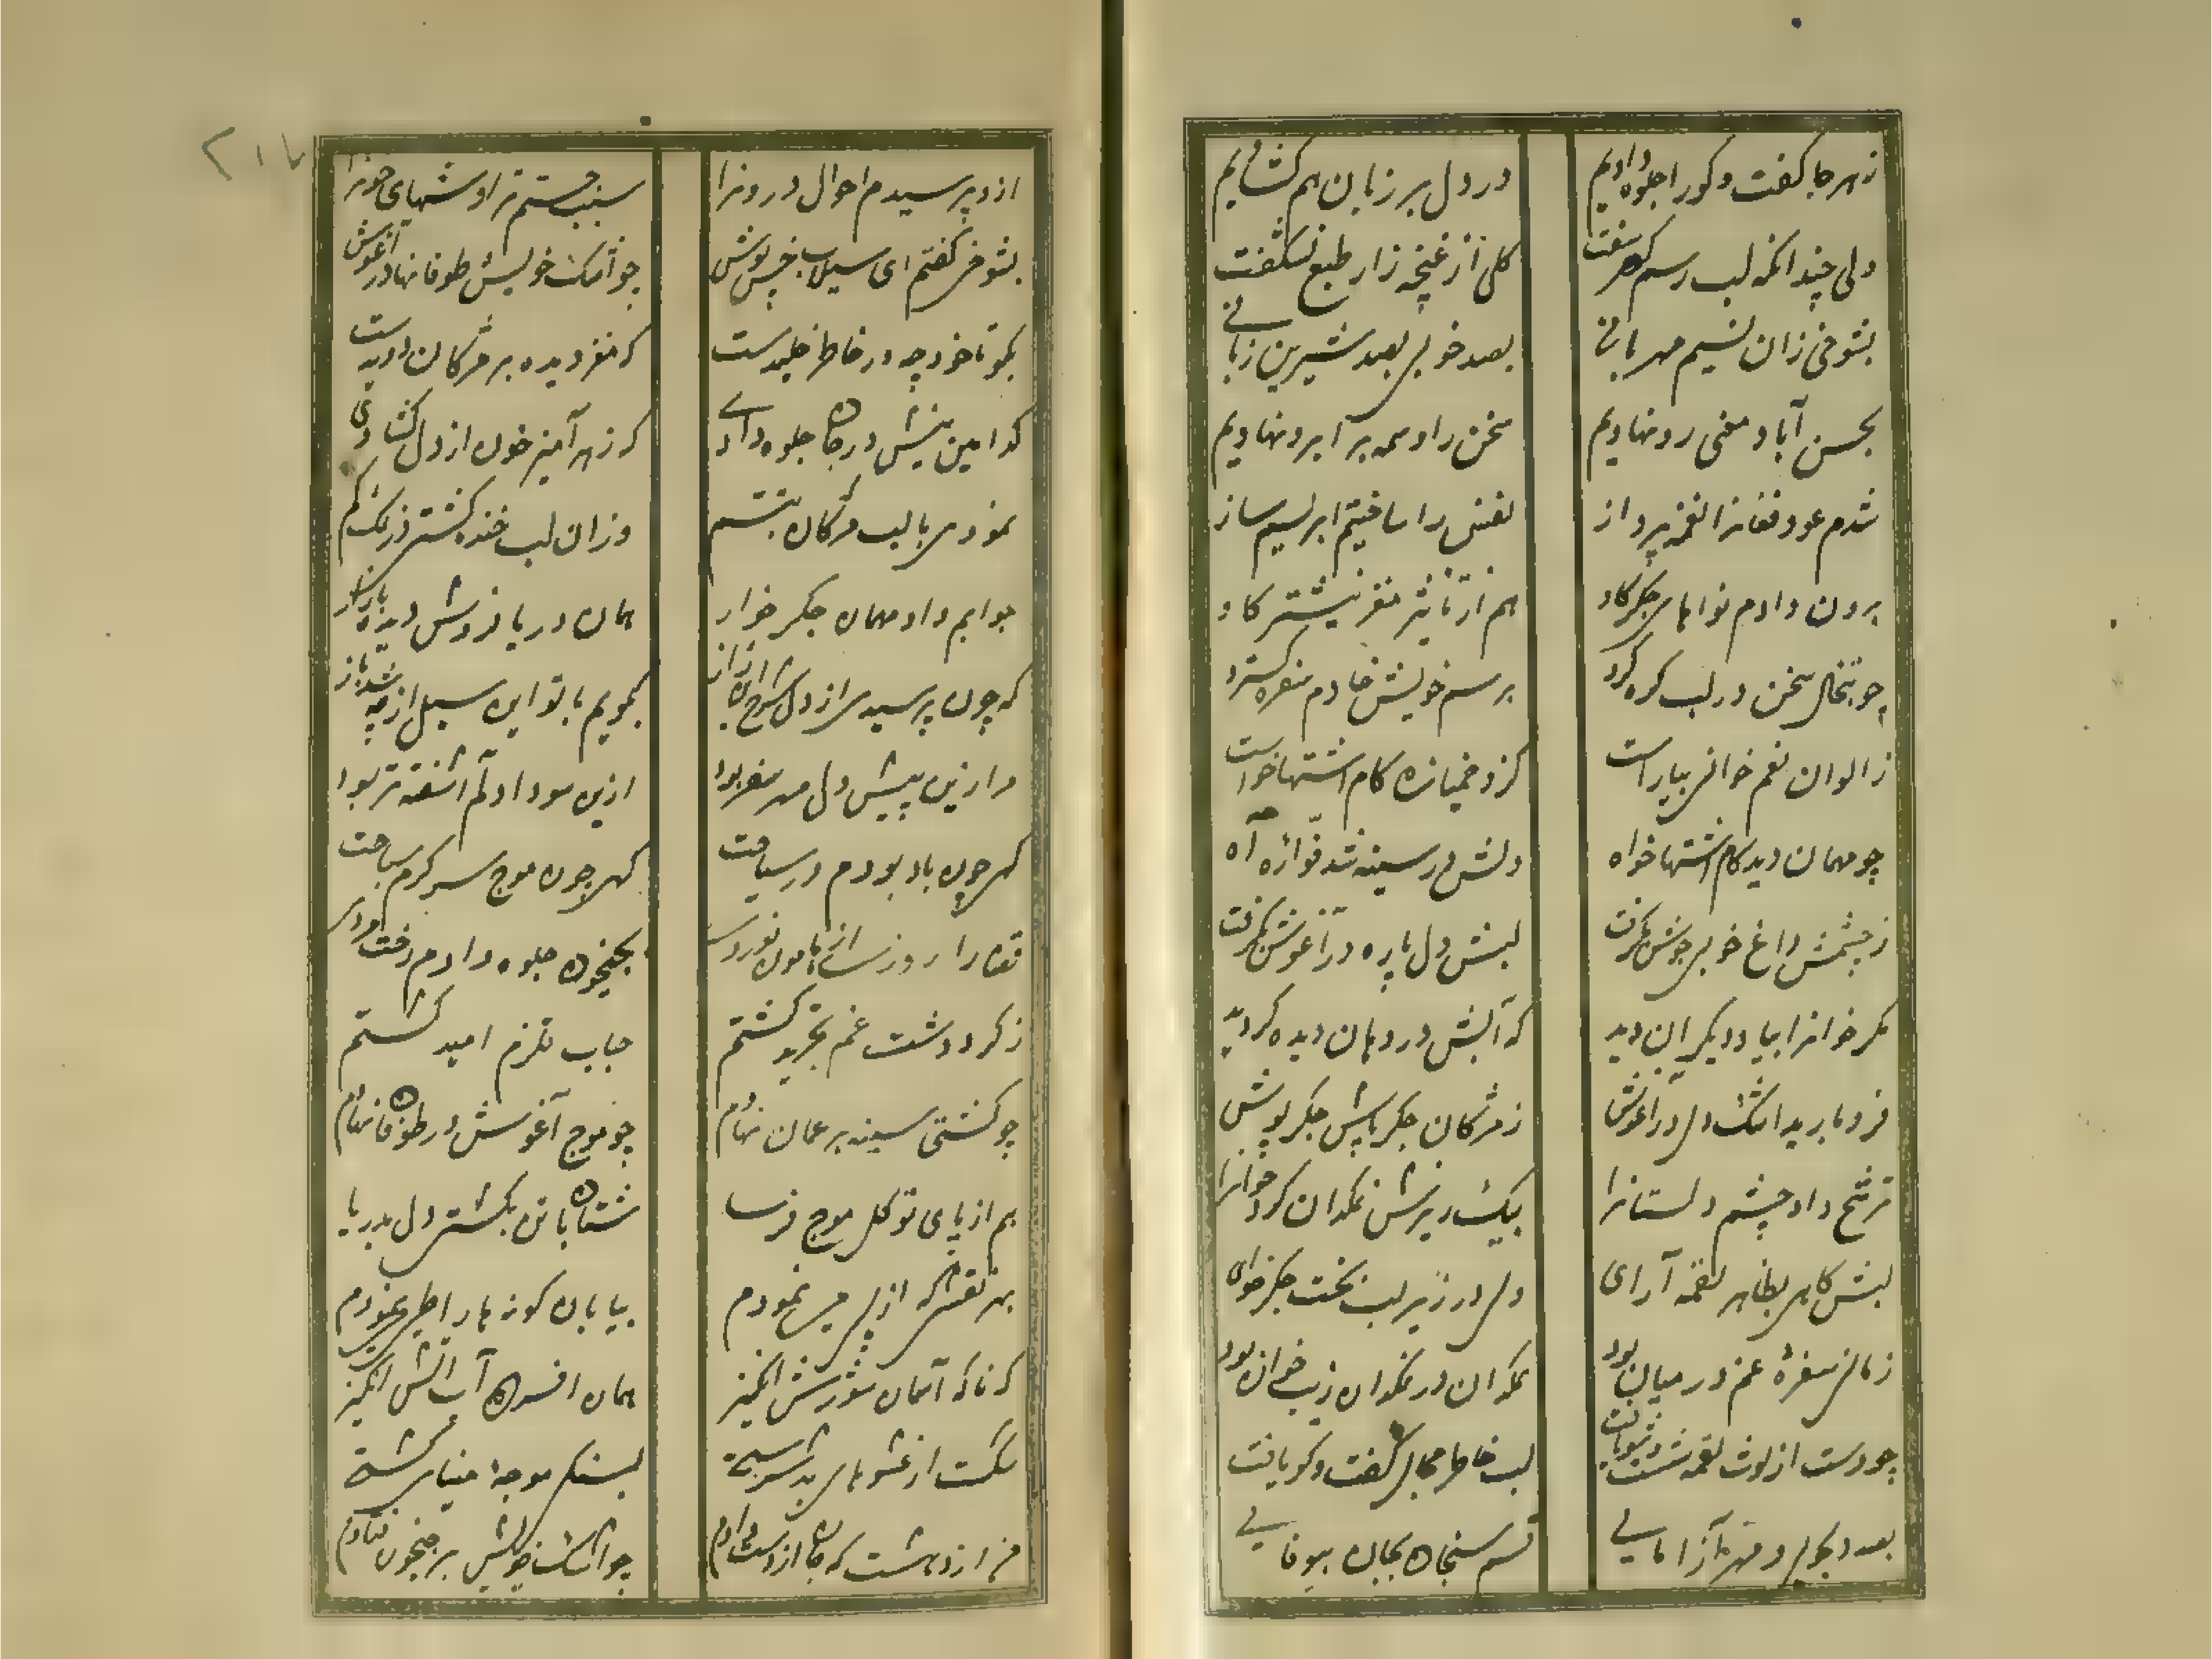 زهر جا گفت و گو را جلوه دادیم در دل بر زبان هم گشایم
ولی چندانکه لب رسم گهر سفت گلی از غنچه زار طبع نشگفت
بشوخی زان نسیم مهربانی بصد خوبی بصد شیرین زبانی
بحسن آباد معنی رو نهادیم سخن را وسمه بر ابرو نهادیم
شدم عود فغانرا نغمه پرداز نفس را ساختیم ابریشم ساز
برون دادم نواهای جگر کاو هم از تاثیر مغز نیشتر کاو
چو تبخال سخن در لب گره کرد برسم خویش خادم سفره گسترد
ز الوان نعم خوانی بیاراست کزو خمیازه کام اشتها خواست
چو مهمان دید کام اشتها خواه دلش در سینه شد فواره آه
ز چشمش داغ خوبی جوش بگرفت لبش دل پاره در آغوش بگرفت
مگر خوانرا بیاد دیگران دید که آبش در دهان دیده گردید
فرو بارید اشک دل در آغوش ز مژگان جگر پاش جگر پوش
ترشح داد چشم دلستانرا بیک ریزش نمکدان کرد خوانرا
لبش گاهی بظاهر لقمه آرای دلی در زیر لب لخت جگر خای
زمانی سفرهٔ غم در میان بود نمکدان در نمکدان زیب خوان بود
چو دست از لوث لقمه شست و شو یافت لب خاطر مجال گفت و گو یافت
بصد دلجویی و مهر آزمایی قسم سنجان بجان بیوفایی
۲۱۷
ازو پرسیدم احوال درونرا سبب جستم تراوشهای خونرا
بشوخی گفتم ای سیلاب خس پوش چو اشک خویش طوفانها در آغوش
بگو تا خود چه در خاطر خلیدست که مغز دیده بر مژگان دویدست
کدامین نیش در جان جلوه دادی که زهر آمیز خون از دل گشادی
نمودی با لب مژگان تبسم وزان لب خنده گشتی زیرک گم
جوابم داد مهمان جگر خوار همان دریا فروش دیده بازار
که چون پرسیدی از دل شرح این راز بگویم با تو این سیل از چه شد باز
مرا زین پیش دل مهر سفر بود ازین سودا دلم آشفته تر بود
گهی چون باد بودم در سیاحت گهی چون موج سرگرم سباحت
قضا را روزی از هامون نوردی بجیحون جلوه دادم رخت مردی
ز گرد دشت غم تجرید گشتم حباب قلزم امید گشتم
چو کشتی سینه بر عمان نهادم چو موج آغوش در طوفان نهادم
هم از پای توکل موج فرسا شتابان تن بکشتی دل بدریا
بهر نقشی که از پی می نمودم بیابان گونه ها را طی نمودم
که ناگه آسمان شورش انگیز همان افسون آب آتش انگیز
شکست از عشوهای بد سرشتی بسنگ موجهٔ مینای کشتی
من از دهشت که جان از دست دادم چو اشک خویش بر جیحون فتادم